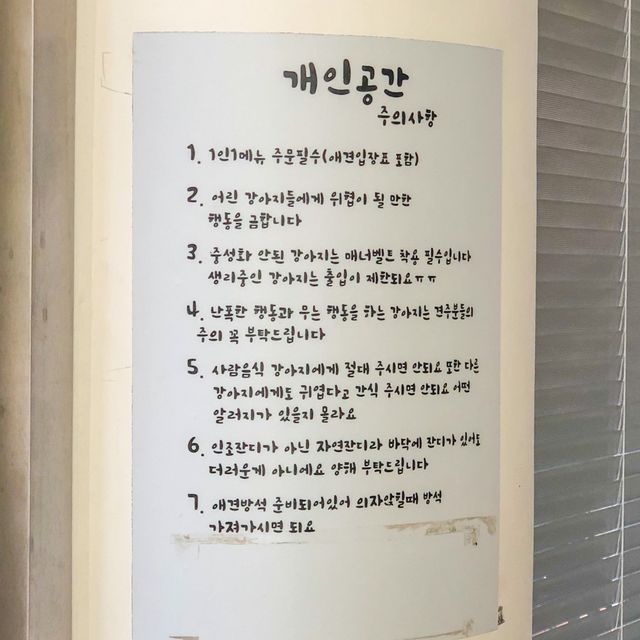 개인공간
주의사항
1. 1인1메뉴 주문필수(애견입장표 포함)
2. 어린 강아지들에게 위협이 될 만한
행동을 금합니다
3. 중성화 안된 강아지는 매너벨트 착용 필수입니다
생리중인 강아지는 출입이 제한되요ㅠㅠ
4. 난폭한 행동과 무는 행동을 하는 강아지는 견주분들의
주의 꼭 부탁드립니다
5. 사람음식 강아지에게 절대 주시면 안되요 또한 다른
강아지에게도 귀엽다고 간식 주시면 안되요 어떤
알러지가 있을지 몰라요
6. 인조잔디가 아닌 자연잔디라 바닥에 잔디가 있어도
더러운게 아니에요 양해 부탁드립니다
7. 애견방석 준비되어있어 의자앉힐때 방석
가져가시면 되요